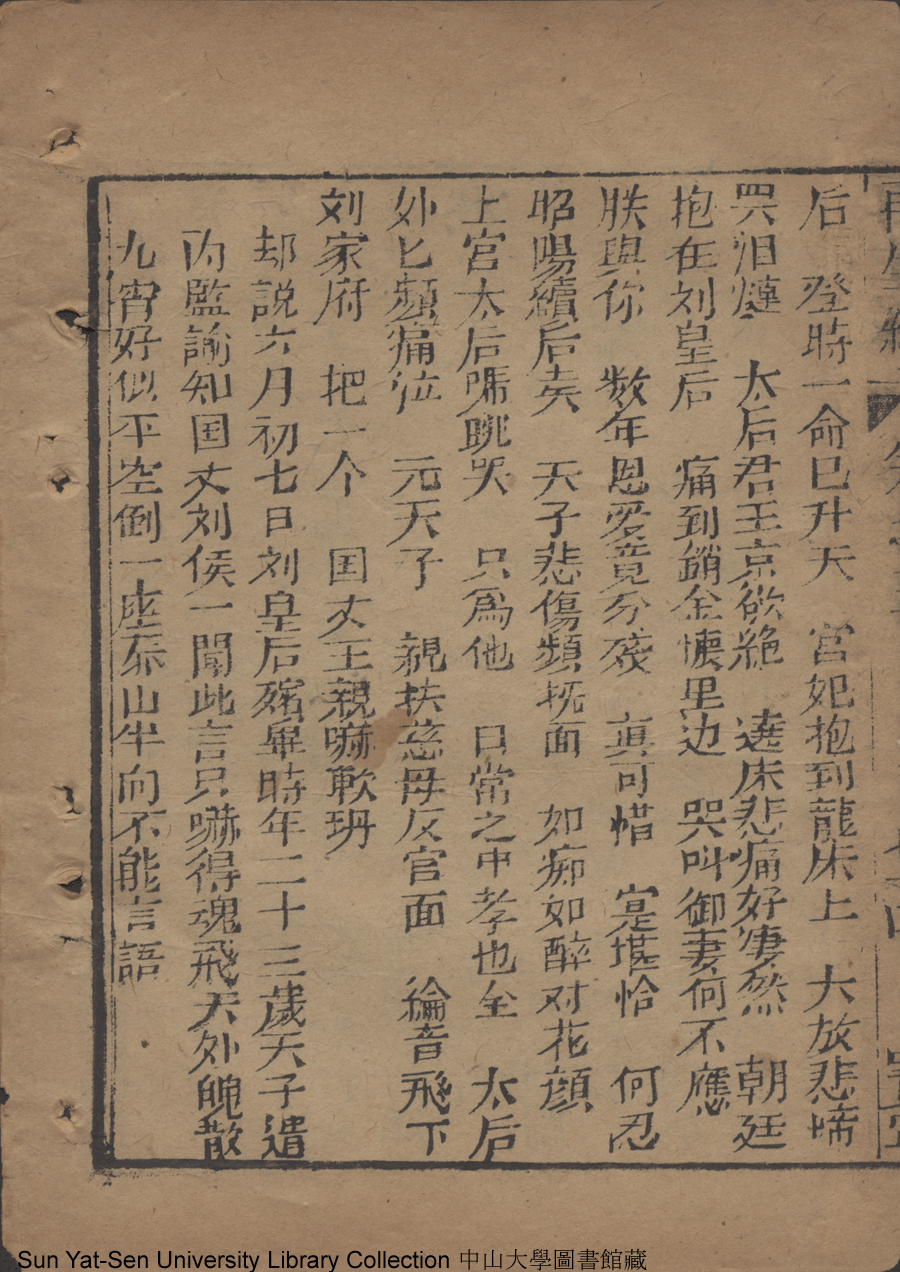 后 登時一命已升天 宫妃抱到龍床上 大放悲啼
哭泪漣 太后君王京欲絶 遶床悲痛好凄然 朝廷
抱在刘皇后 痛到銷金懷里边 哭叫御妻何不應
朕與你 数年恩爱竟分殘 真可惜 寔堪恰 何忍
昭陽續后夫 天子悲傷頻抚面 如痴如醉对花顔
上宫太后嚎眺哭 只為他 日常之中孝也全 太后
外匕頻痛泣 元天子 親扶慈母反官面 綸音飛下
刘家府 把一个 国丈王親嚇軟玬
却説六月初七日刘皇后殯畢時年二十三歲天子遣
内監諭知国丈刘侯一聞此言只嚇得魂飛天外魄散
九宵好似平空倒一座泰山半向不能言語
Sun Yat-Sen University Library Collection 中山大學圖書館藏